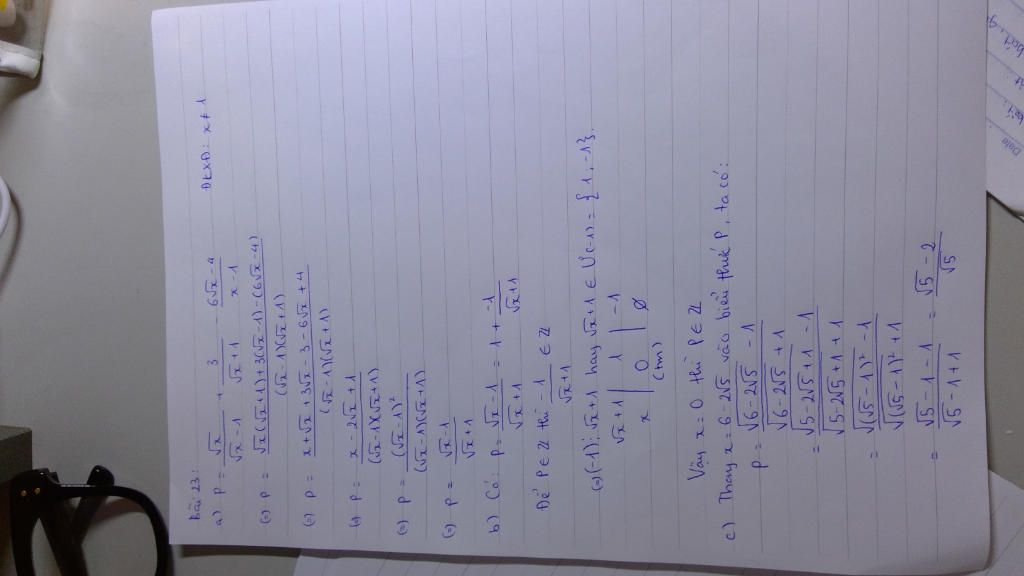 Bài 23:
a) P = √x/(√x-1) + 3/(√x+1) - (6√x-4)/(x-1) ĐKXĐ: x≠1
(=) P = (√x(√x+1)+3(√x-1)-(6√x-4))/((√x-1)(√x+1))
(=) P = (x+√x+3√x-3-6√x+4)/((√x-1)(√x+1))
(=) P = (x-2√x+1)/((√x-1)(√x+1))
(=) P = (√x-1)²/((√x-1)(√x+1))
(=) P = (√x-1)/(√x+1)
b) Có: P = (√x-1)/(√x+1) = 1 + -1/(√x+1)
Để P∈ℤ thì -1/(√x+1) ∈ ℤ
(=) (-1)⋮√x+1 hay √x+1 ∈ Ư(-1) = {1,-1}.
√x+1 | 1 | -1
x | 0 | ∅
(tm)
Vậy x=0 thì P∈ℤ
c) Thay x=6-2√5 vào biểu thức P, ta có:
P = (√(6-2√5) - 1)/(√(6-2√5) + 1)
= (√(5-2√5+1) - 1)/(√(5-2√5+1) + 1)
= (√((√5-1)²) - 1)/(√((√5-1)²) + 1)
= (√5-1-1)/(√5-1+1) = (√5-2)/√5
Date